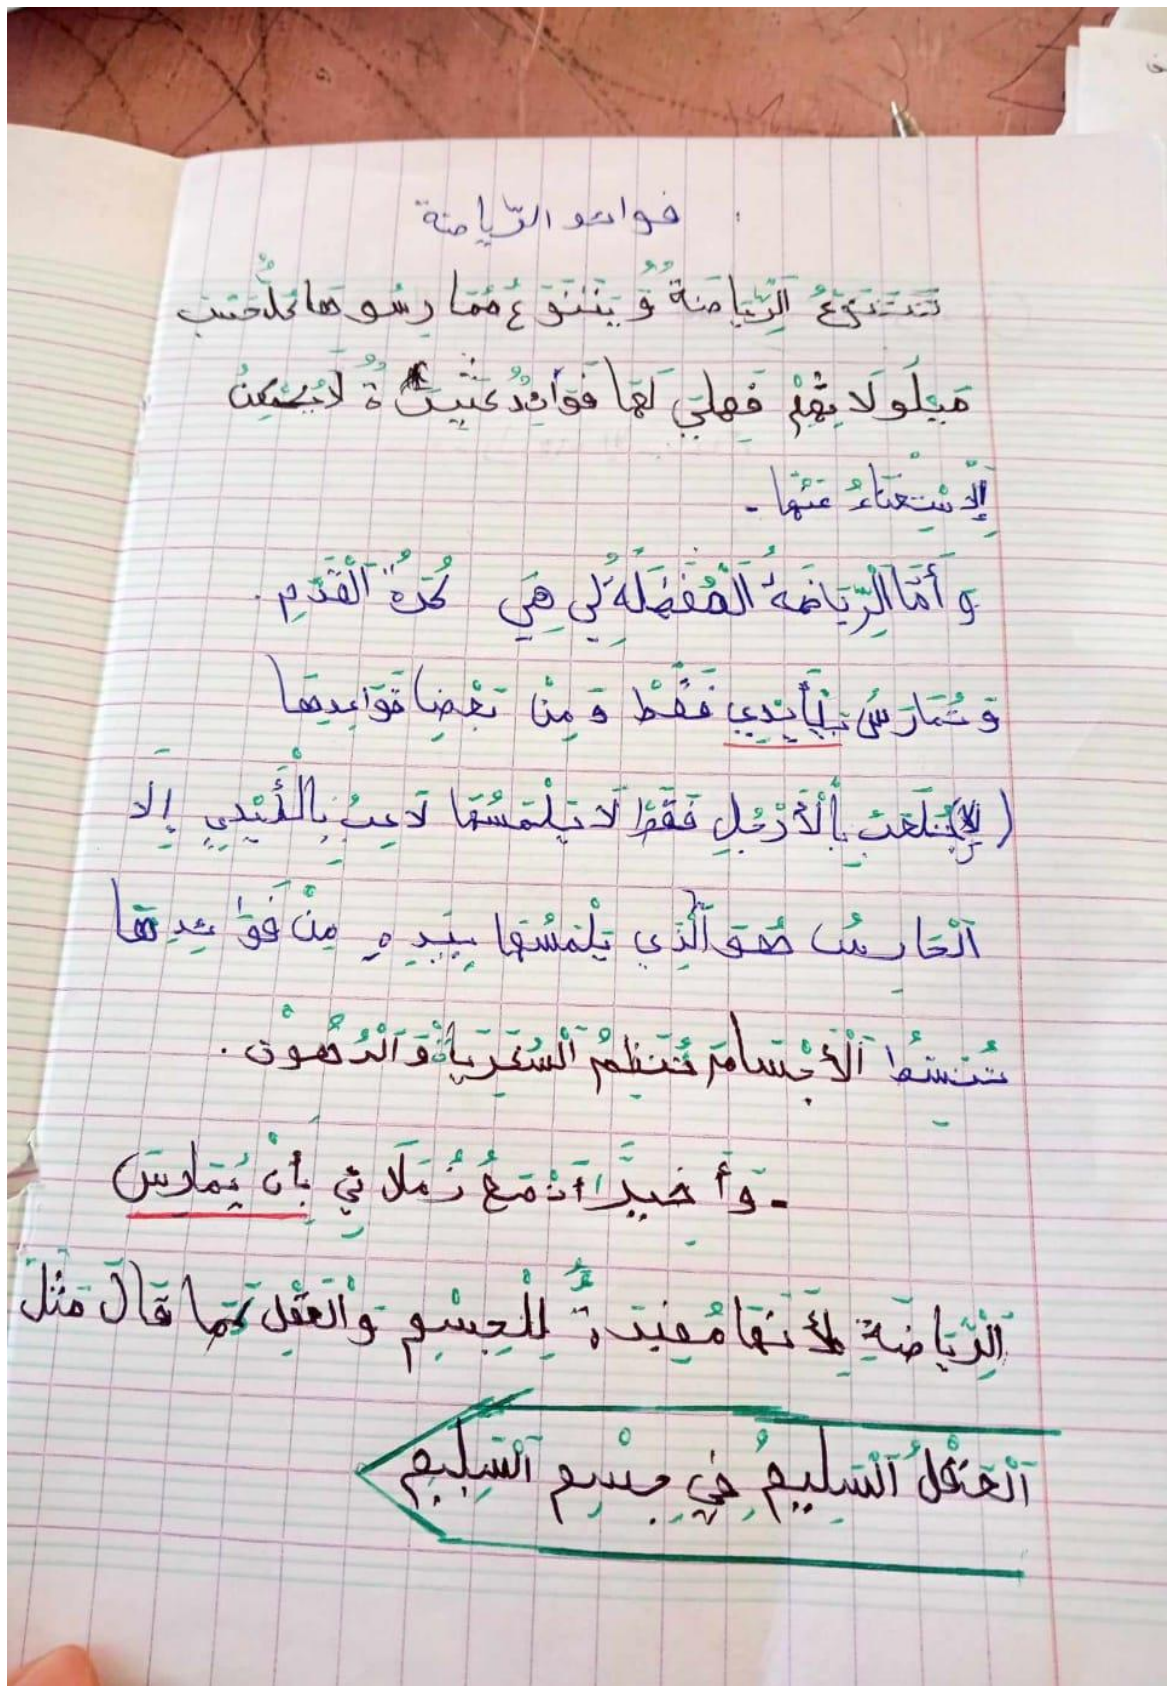 فوائد الرّياضة
تَتَنَوَّعُ الرِّيَاضَةُ وَ يَتَنَوَّعُ مُمَا رِسُو هَا
مَيُلُو لَا تِهِمْ فَهِلِيَ لَهَا فَوَائِدُ لَا يُمْكِنُ
اَلِاسْتِغْنَاءُ عَنْهَا.
وَ أَمَّا الرِّيَاضَةُ الْمُفَضَّلَةُ لِي هِيَ كُرَةُ الْقَدَمِ.
وَ تُمَارَسُ بِلْأَيْدِي فَقَطْ وَ مِنْ بَعْضِ قَوَاعِدِهَا
( يُلْعَبُ بِالْأَرْجُلِ فَقَطْ لَا يَلْمَسُهَا لَاعِبُ بِالْأَيْدِي إِلَا
اَلْحَارِسُ هُوَ اَلَّذِي يَلْمَسُهَا بِيَدِهِ مِنْ فَوَائِدِهَا
تُنَشِّطُ اَلْأَجْسَامَ تُنَظِمُ اَلسُّكَرِيَاتْ وَ اَلْدُهُونْ.
- وَ أَخِيرًا أَنْصَعُ زُمَلَائِي بِأَنْ يُمَارِسَ
اَلْرِّيَاضَةِ لِأَنَهَا مُفِيدَةُ لِلْجِسْمِ وَ الْعَقْلِ كَمَا قَالَ مَثَلَ
اَلْعَقْلُ اَلْسَلِيمُ فِي جِسْمِ اَلْسَلِيمِ